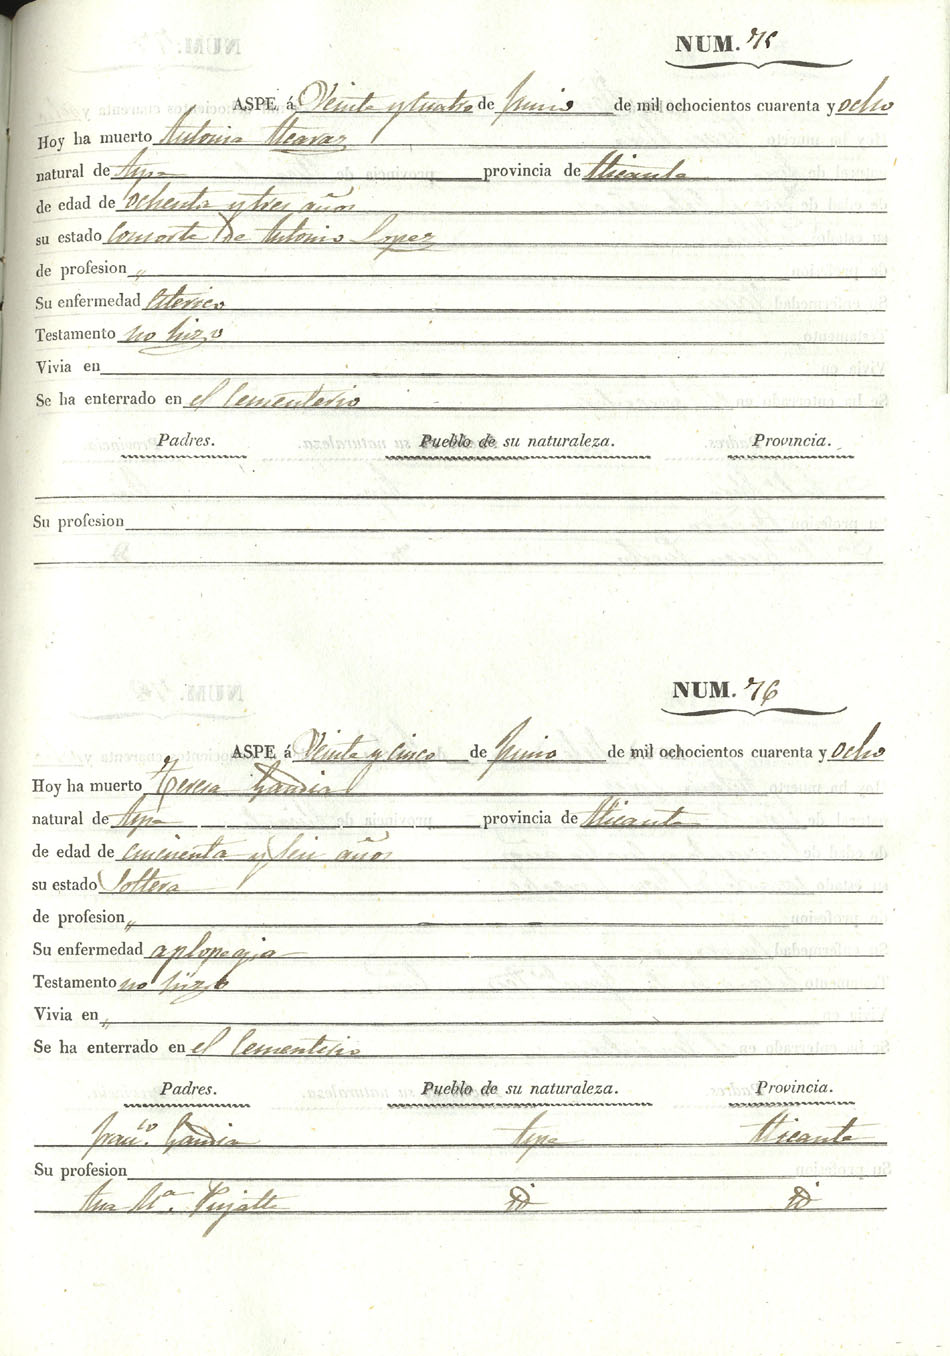 NUM. 75
ASPE á Veinte y cuatro de Junio de mil ochocientos cuarenta y ocho
Hoy ha muerto Antonia Alcaraz
natural de Aspe provincia de Alicante
de edad de ochenta y tres años
su estado Consorte de Antonio Lopez
de profesion „
Su enfermedad
Testamento no hizo
Vivia en
Se ha enterrado en el Cementerio
Padres. Pueblo de su naturaleza. Provincia.
Su profesion
NUM. 76
ASPE á Veinte y cinco de Junio de mil ochocientos cuarenta y ocho
Hoy ha muerto Teresa Gandia
natural de Aspe provincia de Alicante
de edad de cincuenta y seis años
su estado Soltera
de profesion „
Su enfermedad aplopegia
Testamento no hizo
Vivia en „
Se ha enterrado en el Cementerio
Padres. Pueblo de su naturaleza. Provincia.
Franco. Gandia Aspe Alicante
Su profesion
Ana Ma. Pujalte id id